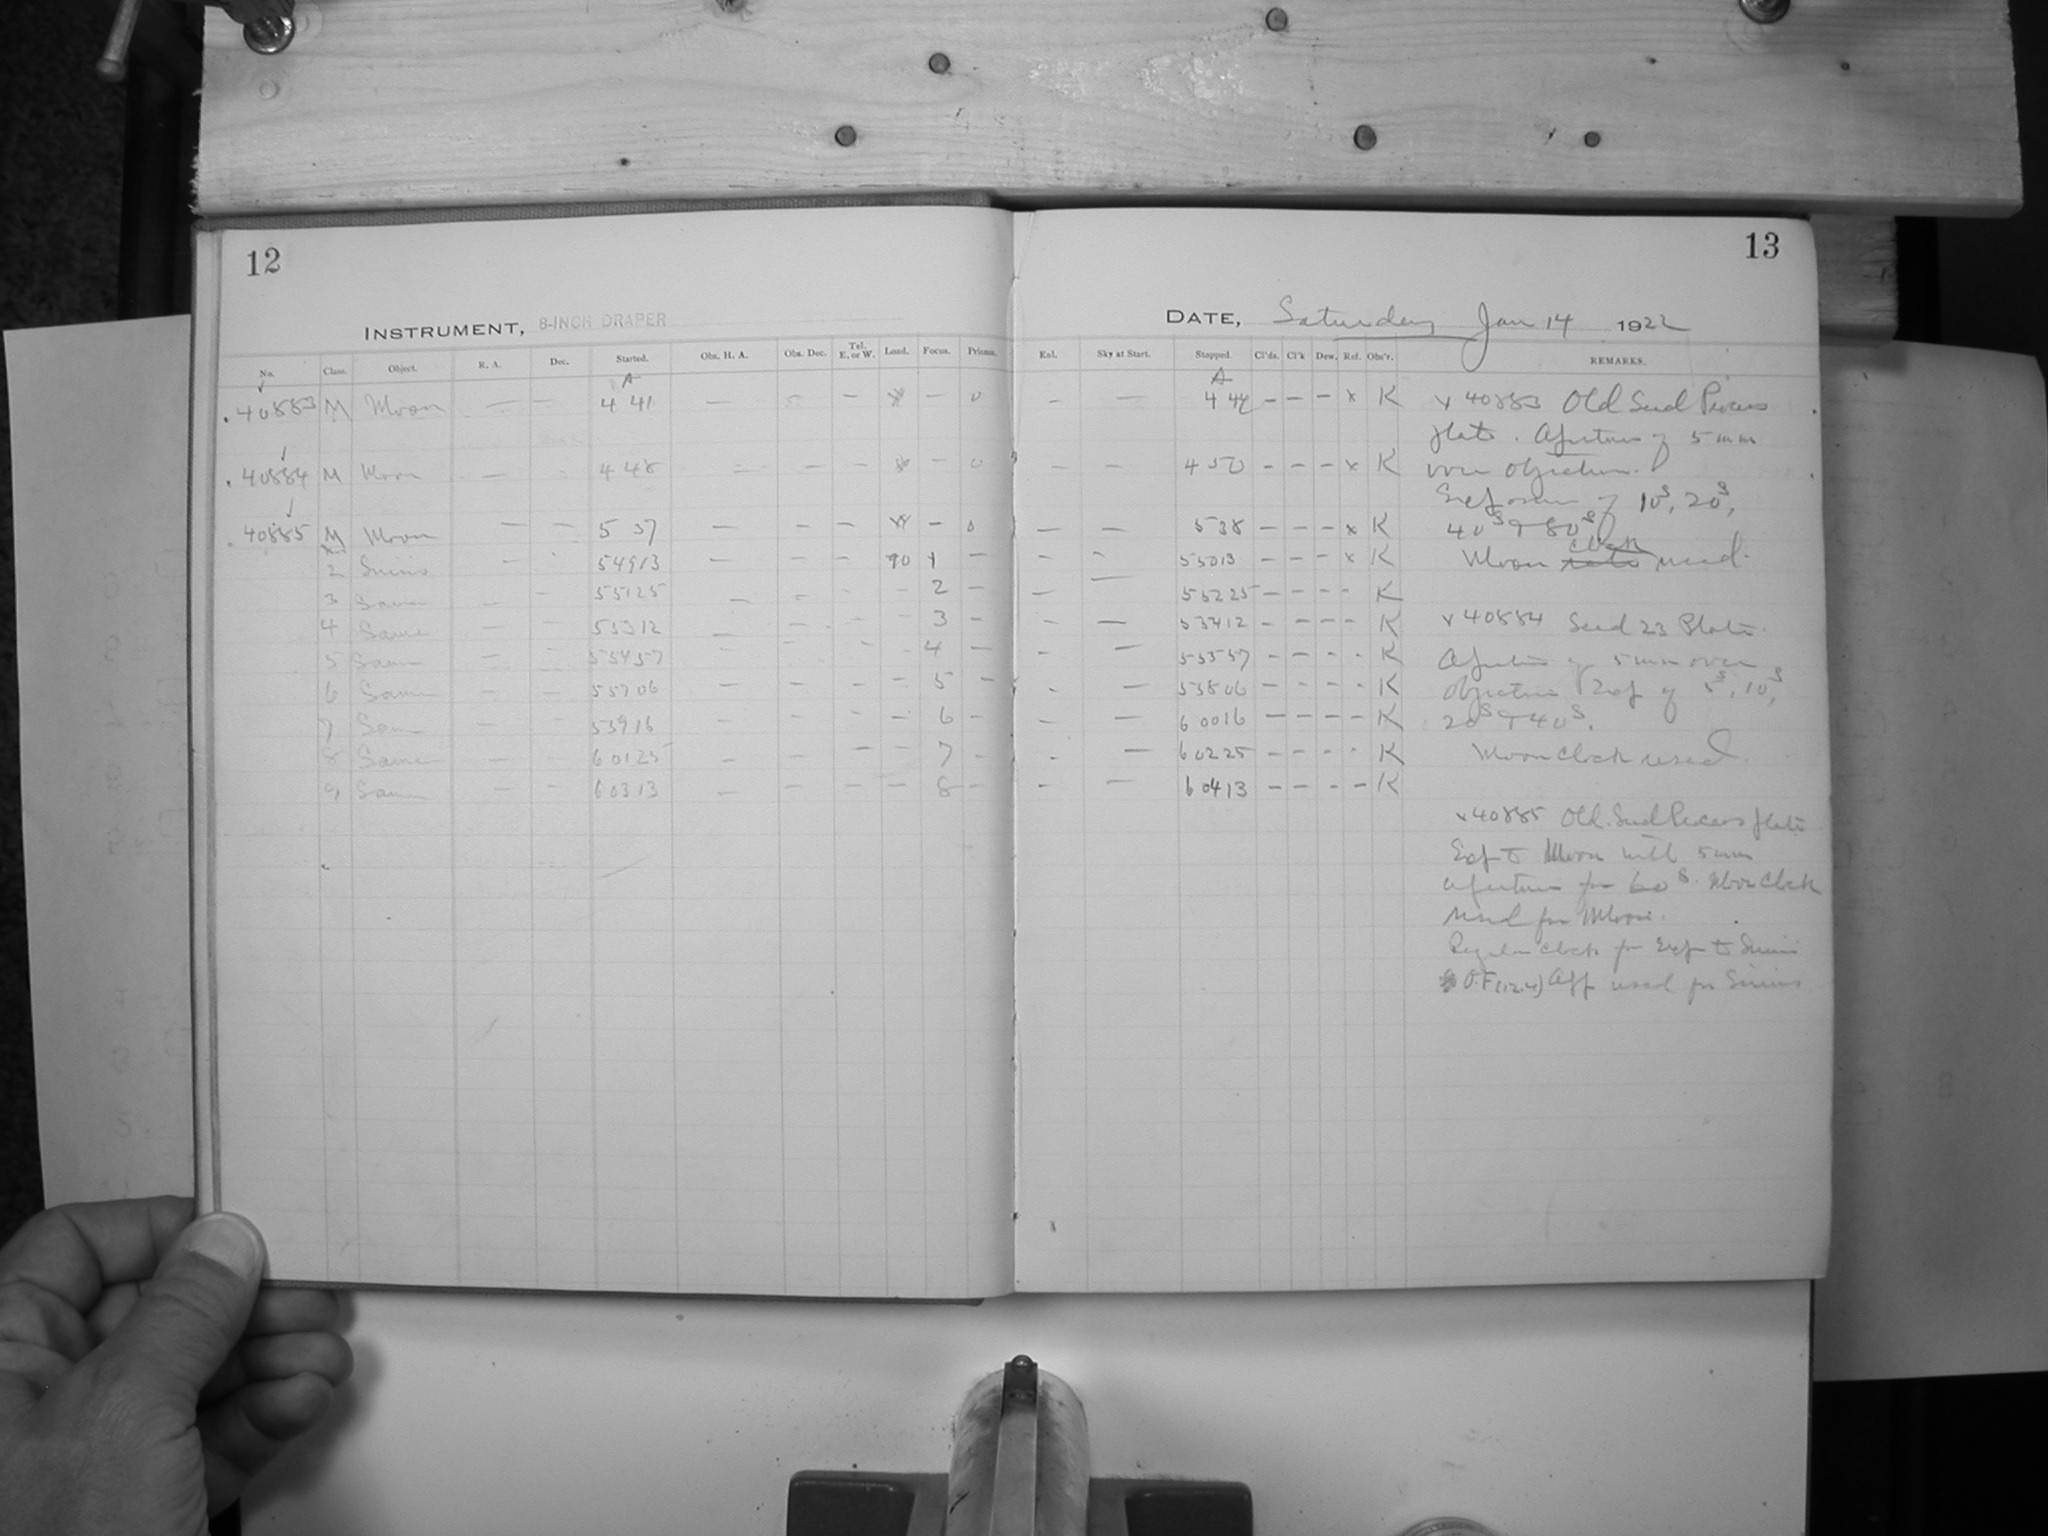 12
13
INSTRUMENT, 8-INCH DRAPER
DATE, Saturday Jan 14 1922
No. Class. Object. R. A. Dec. Started. Obs. H. A. Obs. Dec. Tel. E. or W. Load. Focus. Prisms. Enl. Sky at Start. Stopped. Cl'ds. Cl'k Dew. Ref. Obs'r. REMARKS.
A A
40883 M Moon — — 4 41 — — — — 0 — — 4 44 — — — x K
40884 M Moon — 4 48 — — — — 0 — — 4 50 — — — x K
40885 M Moon — — 5 37 — — — — 0 — — 5 38 — — — x K
2 Sirius — 54913 — — — 90 1 — — 55013 — — — x K
3 Same — — 55125 — — — — 2 — — — 55225 — — — — K
4 Same — — 55312 — — — — 3 — — — 55412 — — — — K
5 Same — — 55457 — — — — 4 — — — 55557 — — — — K
6 Same — — 55706 — — — — 5 — — — 55806 — — — — K
7 Same — — 55916 — — — — 6 — — — 60016 — — — — K
8 Same — — 60125 — — — — 7 — — — 60225 — — — — K
9 Same — — 60313 — — — — 8 — — — 60413 — — — — K
x 40883 Old Seed Process
plate. Aperture of 5 mm
over objective.
Exposures of 10s, 20s,
40s & 80s
Moon clock used.
x 40884 Seed 23 Plate.
Aperture of 5 mm over
objective Exp of 5s, 10s,
20s & 40s.
Moon Clock used.
x 40885 Old Seed Process plate
Exp to Moon with 5mm
aperture for 60s. Moon Clock
used for Moon.
Regular clock for Exp to Sirius
O.F. (12.4) App used for Sirius